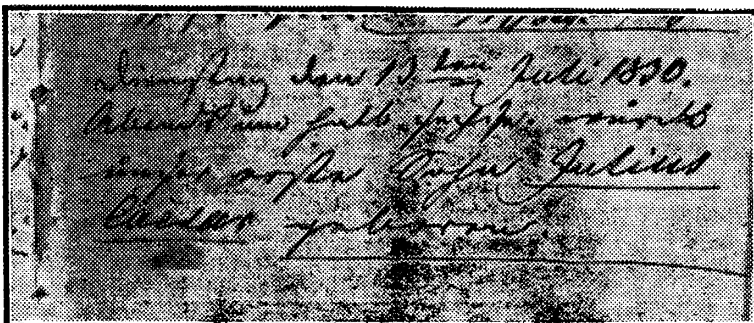 Dienstag den 13. ten Juli 1830.
Abends um halb sechs wurde
unser erste Sohn Julius
Caesar geboren.